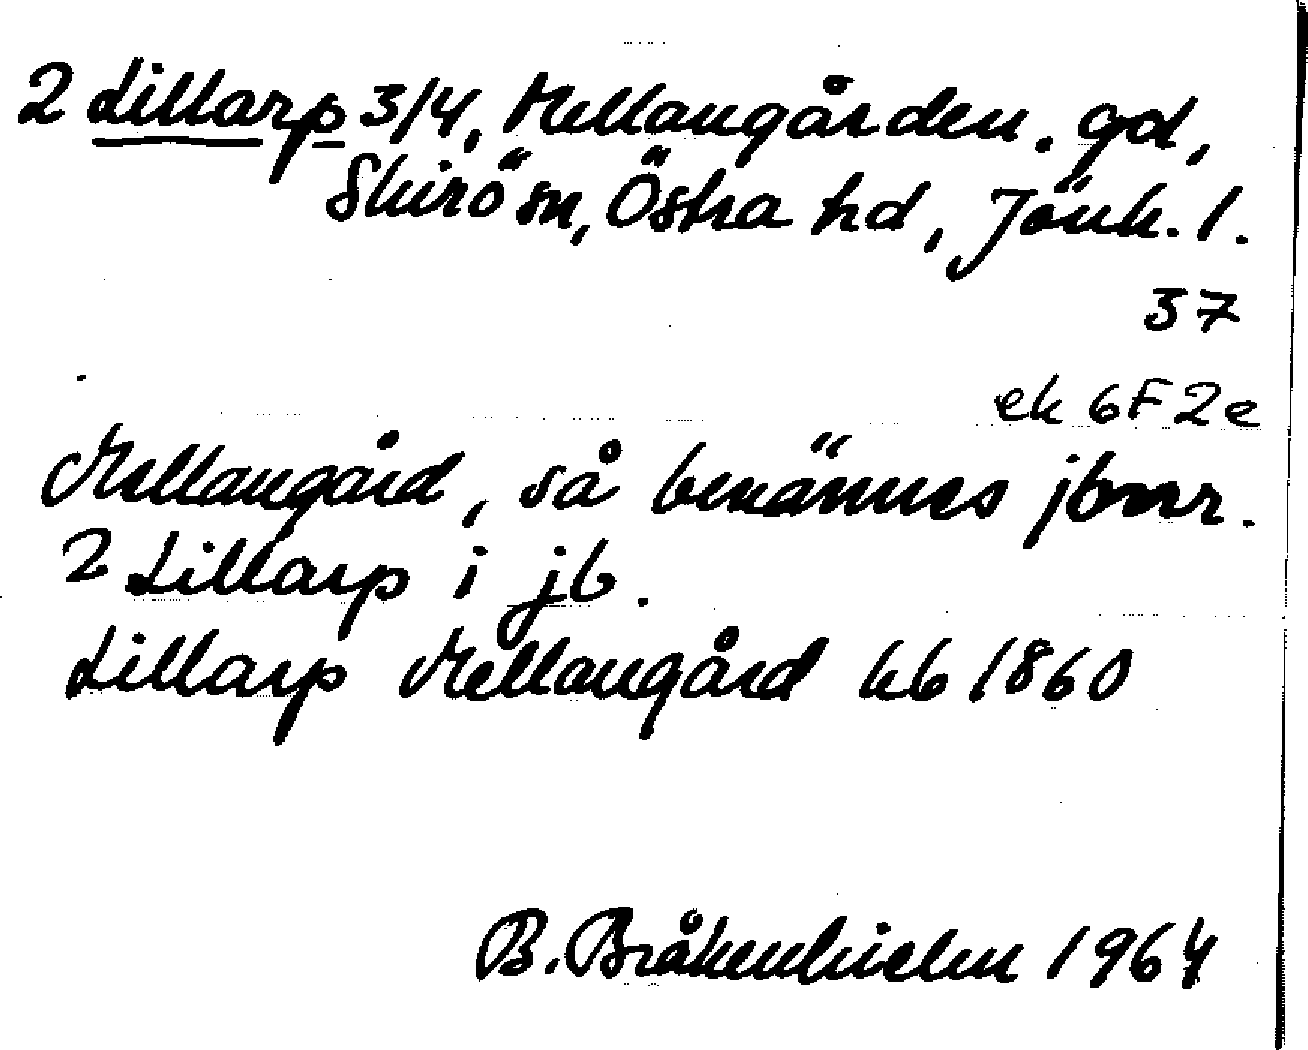 2 Lillarp 3/4, Mellangården. gd,
Skirö sn, Östra hd, Jönk. l.
37
ek 6F2e
Mellangård, så benämnes jbnr.
2 Lillarp i jb.
Lillarp Mellangård kb 1860
B. Bråkenhielm 1964